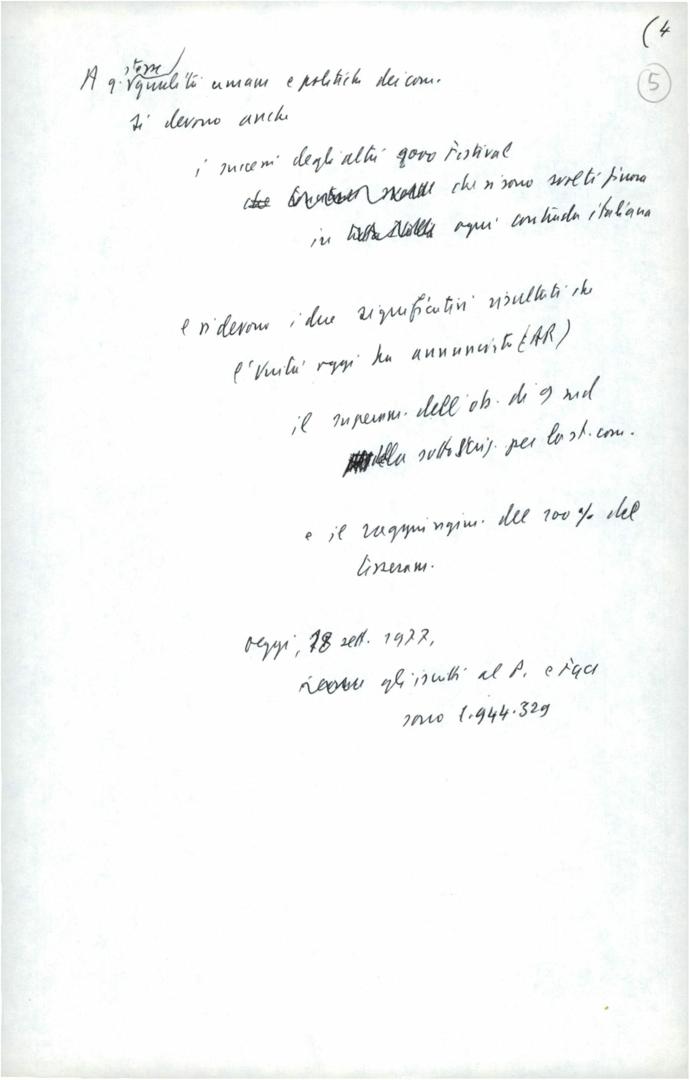 (4
5
stesse
A q. qualità umane e politiche dei com.
si devono anche
i successi degli altri Festival
che che si sono svolti finora
in ogni contrada italiana
e si devono i due significativi risultati che
l'Unità oggi ha annunciato (AR)
il superam. dell'ob. di 9 md
della sottoscriz. per la st. com.
e il raggiungim. del 100% del
tesseram.
oggi, 18 sett. 1977,
gli iscritti al P. e FGCI
sono 1.944.329